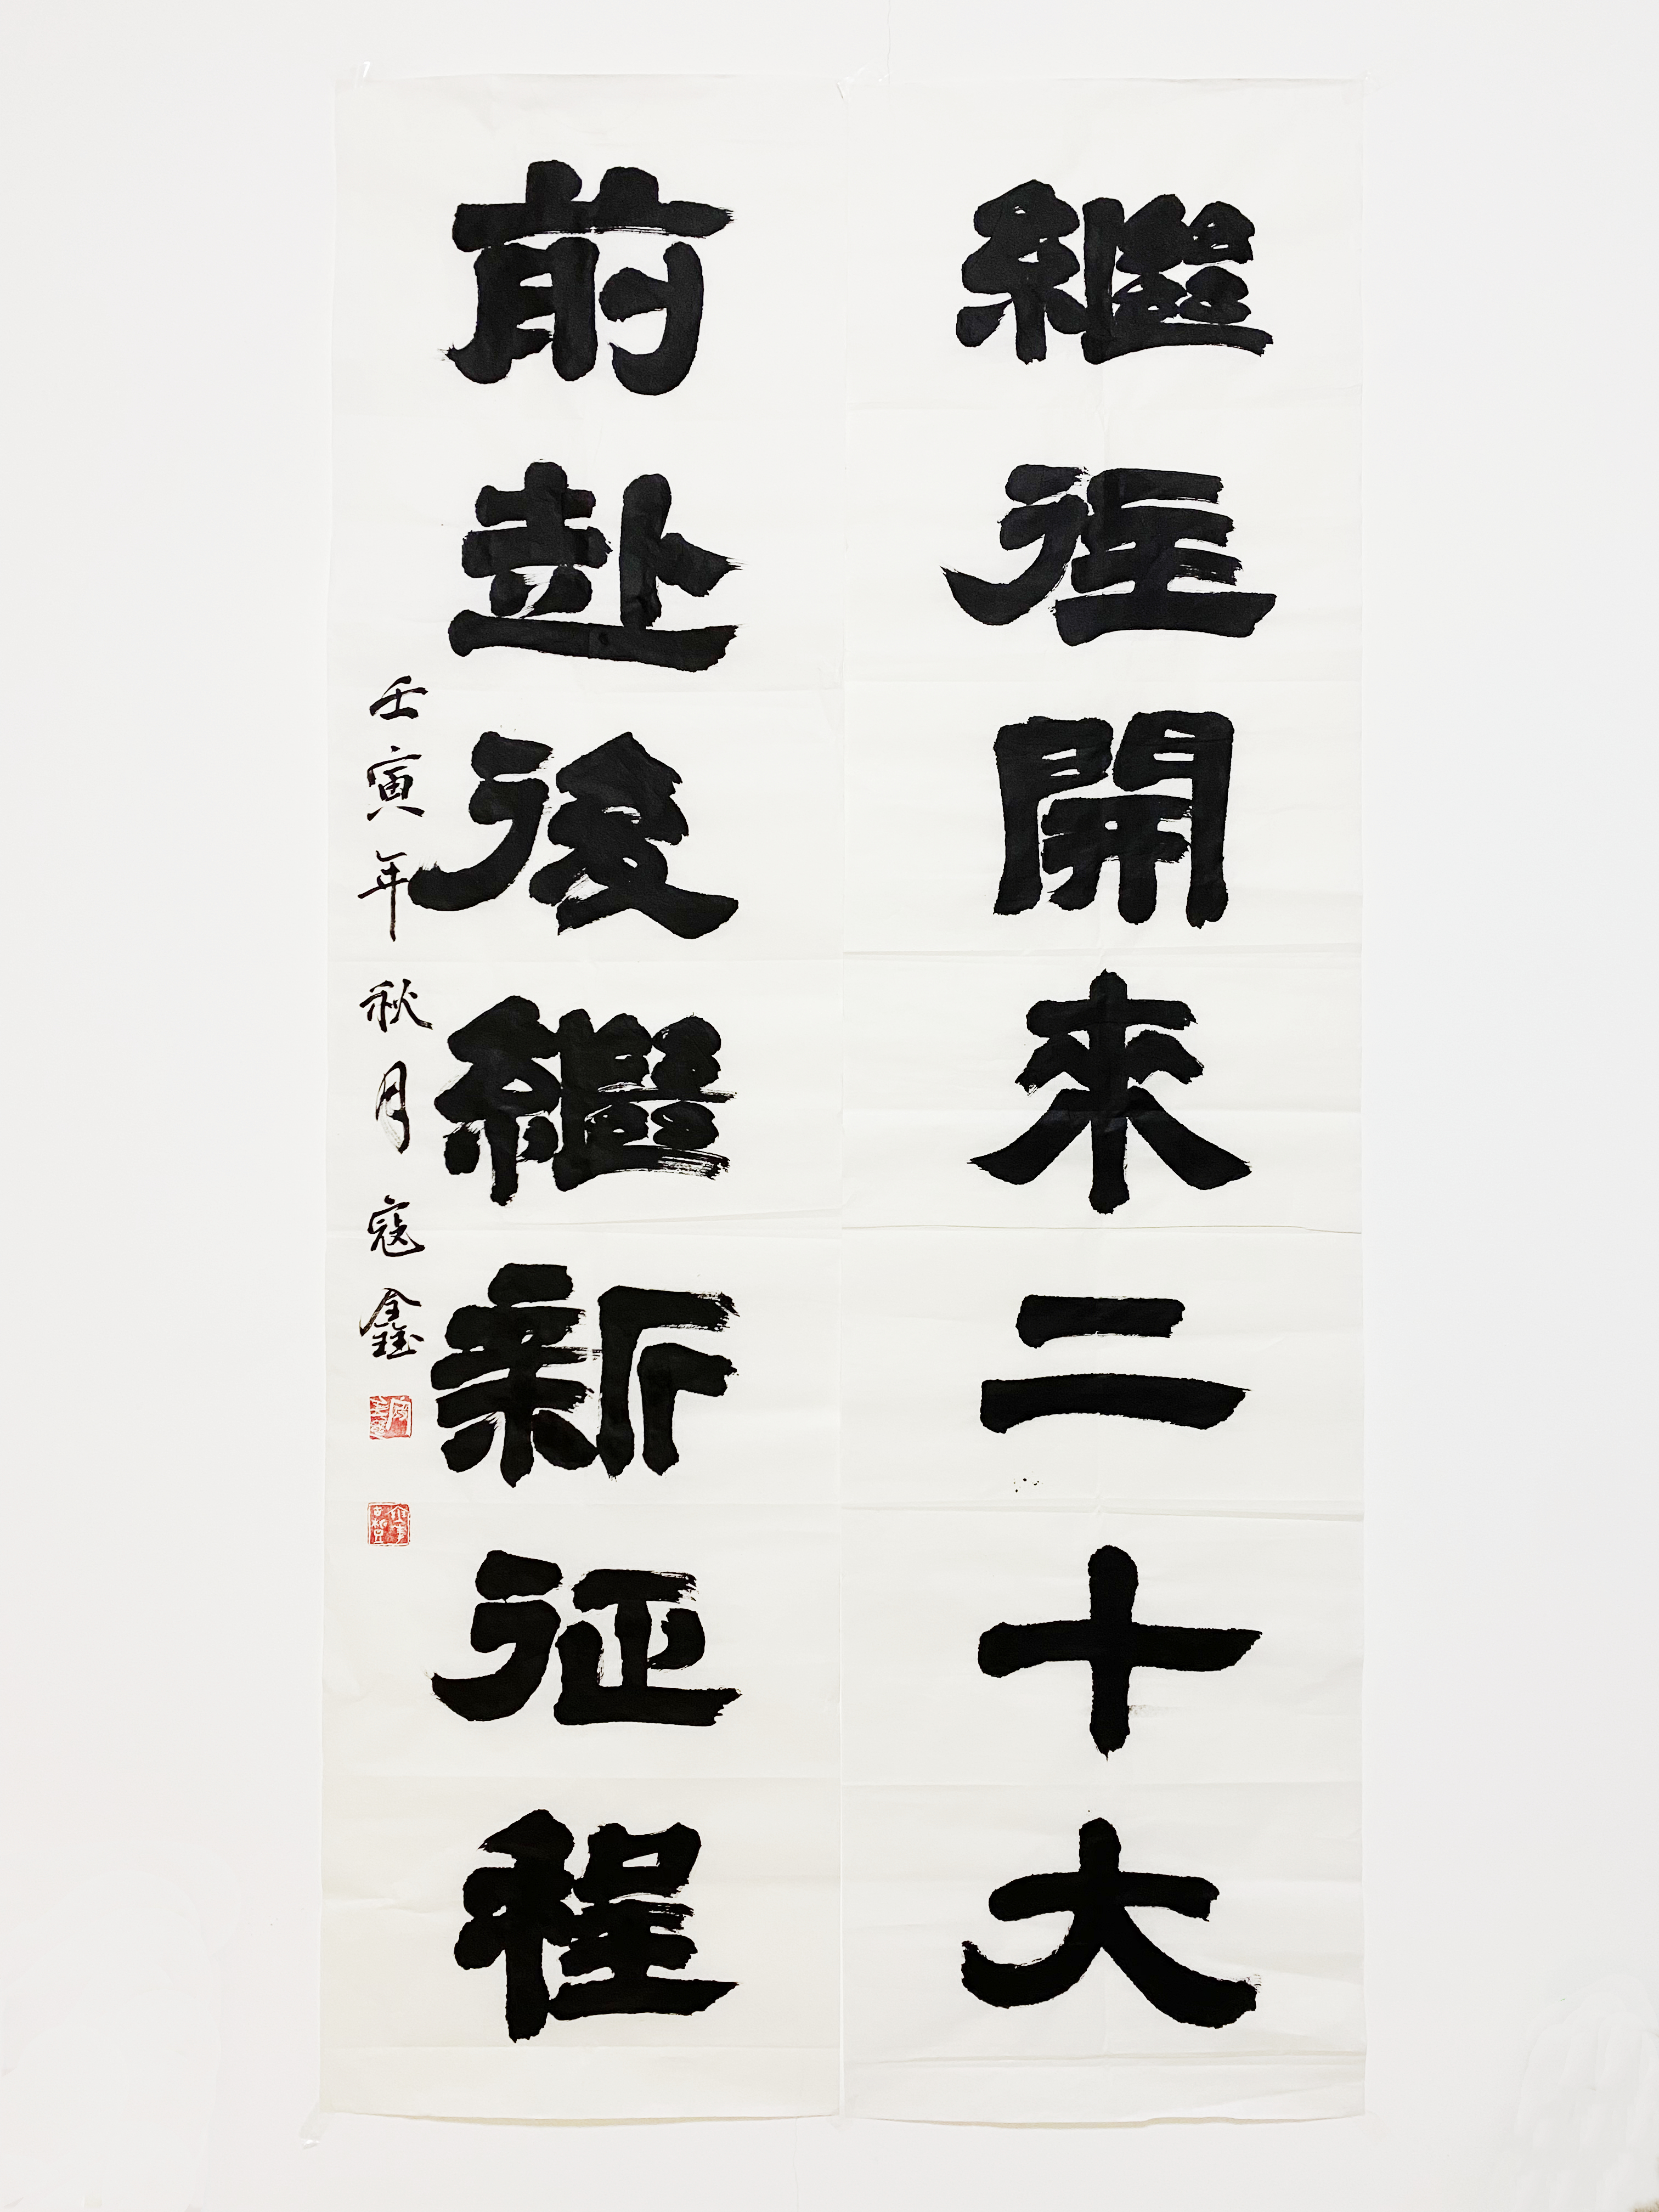 繼往開來二十大
前赴後繼新征程
壬寅年秋月寇鑫